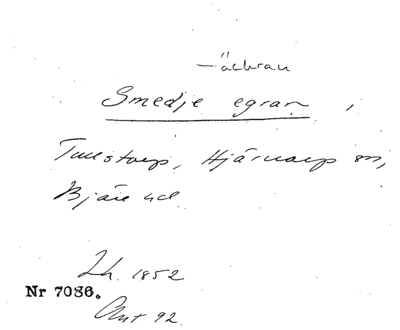 -åckran
Smedje egran,
Tullstorp, Hjärnarp sn,
Bjäre hd.
Lh. 1852
Nr 7086.
Akt 92.